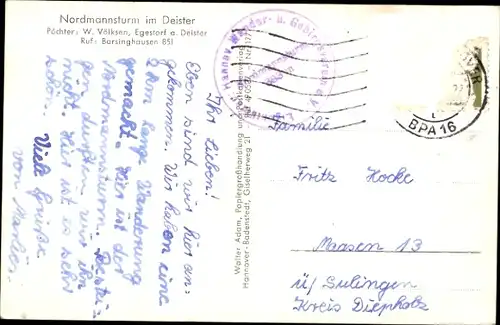 Nordmannsturm im Deister
Pächter: W. Völksen, Egestorf a. Deister
Ruf: Barsinghausen 851
Ihr Lieben!
Eben sind wir hier an-
gekommen. Wir haben eine
lange Wanderung
gemacht. Hier ist der
Nordmannsturm. Bestei-
gen durften wir ihn
nicht. Hier ist es sehr
schön. Viele Grüße
von
Walter Adam, Papiergroßhandlung und
Hannover-Badenstedt, Giselherweg 21
Hannover
BPA 16
Familie
Fritz Hocke
Maasen 13
ü/ Sulingen
Kreis Diepholz